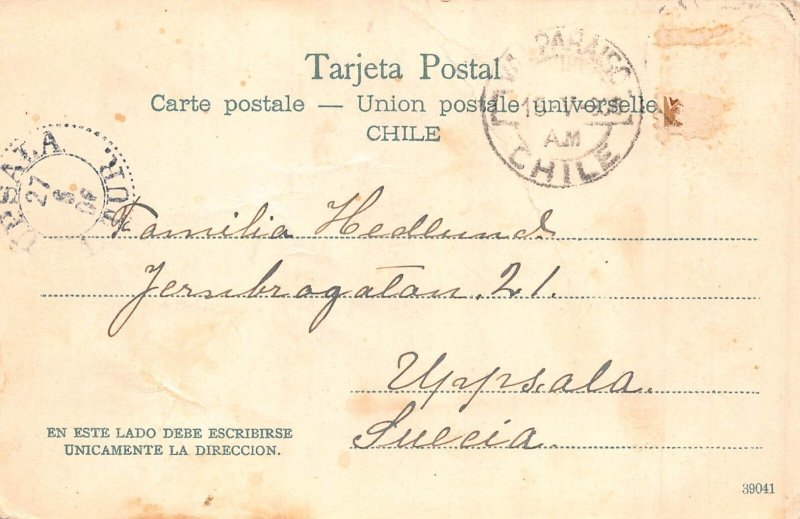 Tarjeta Postal
Carte postale — Union postale universelle.
CHILE
VALPARAISO
A.M
CHILE
UPSALA
27
Familia Hedlund
Jernbrogatan. 21.
Uppsala.
Suecia.
EN ESTE LADO DEBE ESCRIBIRSE
UNICAMENTE LA DIRECCION.
39041